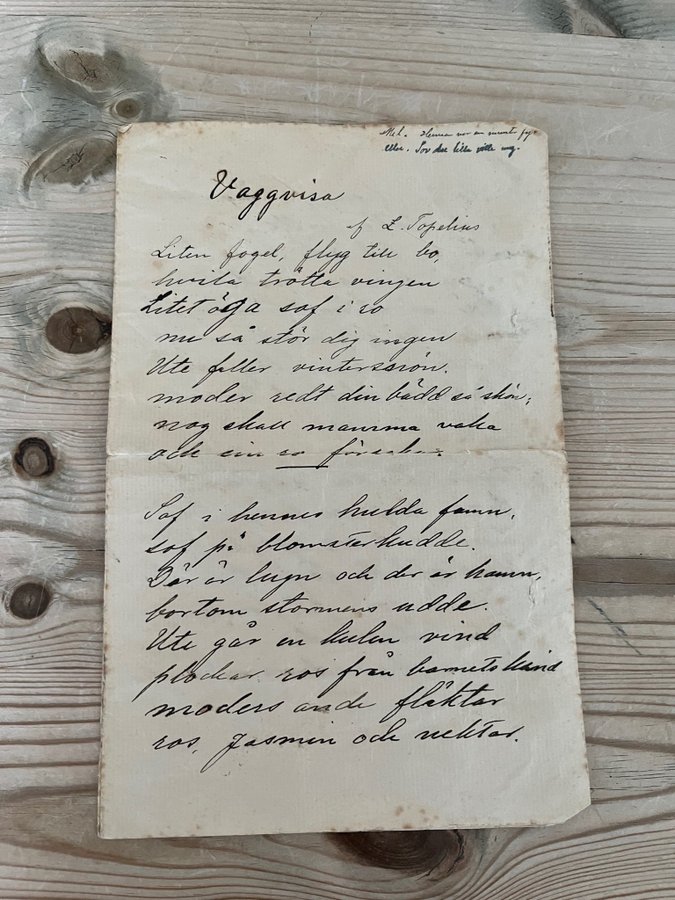 Mel.
eller. Sov du lilla vide ung.
Vaggvisa
af Z. Topelius
Liten fogel, flyg till bo,
hvila trötta vingen
Litet öga sof i ro
nu så stör dig ingen
Ute faller vintersnön.
moder redt din bädd så skön;
nog skall mamma vaka
och sin ro försaka.
Sof i hennes hulda famn,
sof på blomsterkudde.
Där är lugn och der är hamn,
bortom stormens udde.
Ute går en kulen vind
plockar ros från barnets kind
moders ande fläktar
ros, jasmin och nektar.